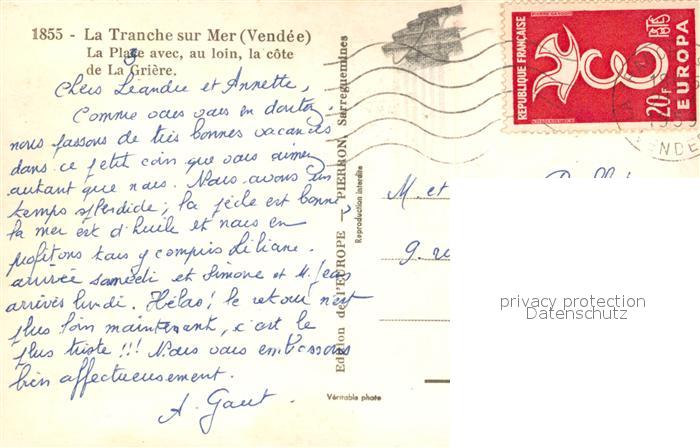 1855 - La Tranche sur Mer (Vendée)
La Plage avec, au loin, la côte
de La Grière.
Chers Léandre et Annette,
Comme vous vous en doutez,
nous passons de très bonnes vacances
dans ce petit coin que vous aimez
autant que nous. Nous avons un
temps splendide, la pêche est bonne,
la mer est d'huile et nous en
profitons tous y compris Liliane.
arrivée samedi et Simone et M. Jean
arrivés lundi. Hélas! le retour n'est
plus loin maintenant, c'est le
plus triste!!! Nous vous embrassons
bien affectueusement.
A. Gaut.
Edition de l'EUROPE — PIERRON, Sarreguemines
Reproduction interdite
Véritable photo
REPUBLIQUE FRANÇAISE
20F
EUROPA
M. et
9. r
privacy protection
Datenschutz